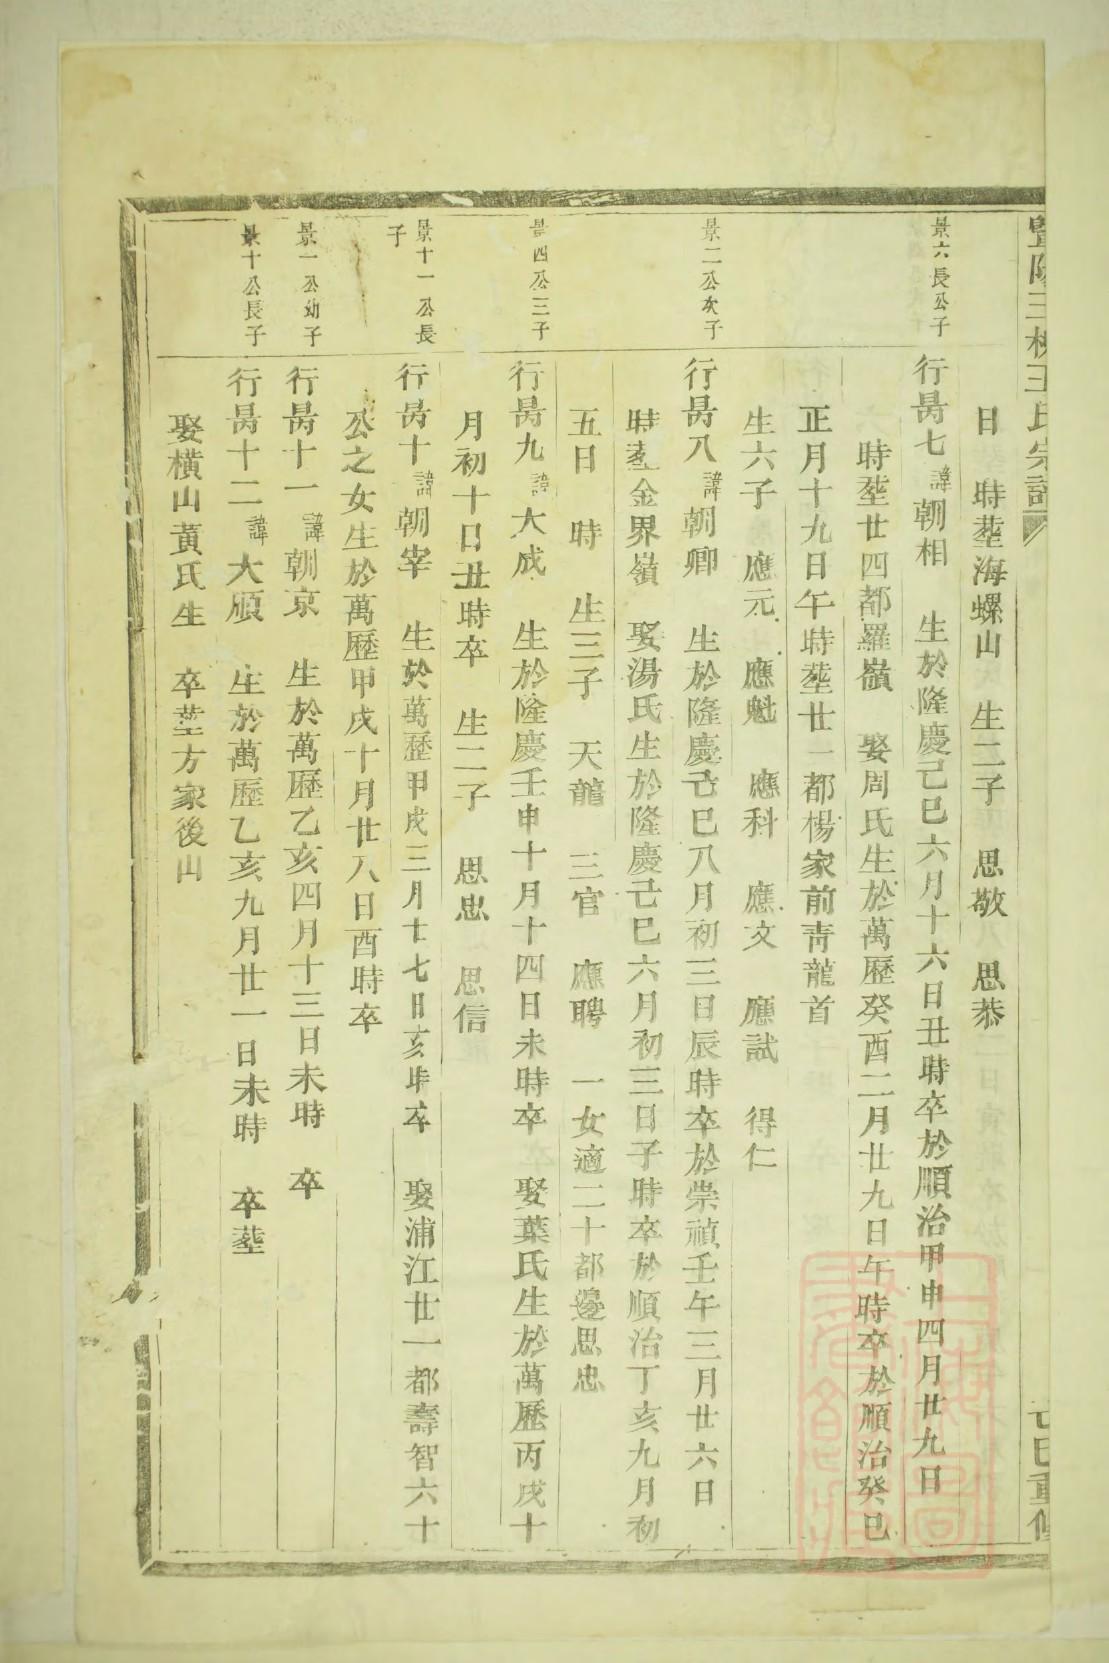 暨陽三桃王氏宗譜
己巳重修
日　時塟海螺山　生二子　思敬　思恭
景六長公子
行昺七諱朝相　生於隆慶己巳六月十六日丑時卒於順治甲申四月廿九日
時塟廿四都羅嶺　娶周氏生於萬歷癸酉二月廿九日午時卒於順治癸巳
正月十九日午時塟廿一都楊家前靑龍首
生六子　應元　應魁　應科　應文　應試　得仁
景二公次子
行昺八諱朝卿　生於隆慶己巳八月初三日辰時卒於崇禎壬午三月廿六日
時塟金界嶺　娶湯氏生於隆慶己巳六月初三日子時卒於順治丁亥九月初
五日　時　生三子　天龍　三官　應聘　一女適二十都邊思忠
景四公三子
行昺九諱大成　生於隆慶壬申十月十四日未時卒　娶葉氏生於萬歷丙戌十
月初十日丑時卒　生二子　思忠　思信
景十一公長子
行昺十諱朝宰　生於萬歷甲戌三月十七日亥時卒　娶浦江廿一都壽智六十
公之女生於萬歷甲戌十月廿八日酉時卒
景一公幼子
行昺十一諱朝京　生於萬歷乙亥四月十三日未時　卒
景十公長子
行昺十二諱大順　生於萬歷乙亥九月廿一日未時　卒塟
娶橫山黃氏生　卒塟方家後山